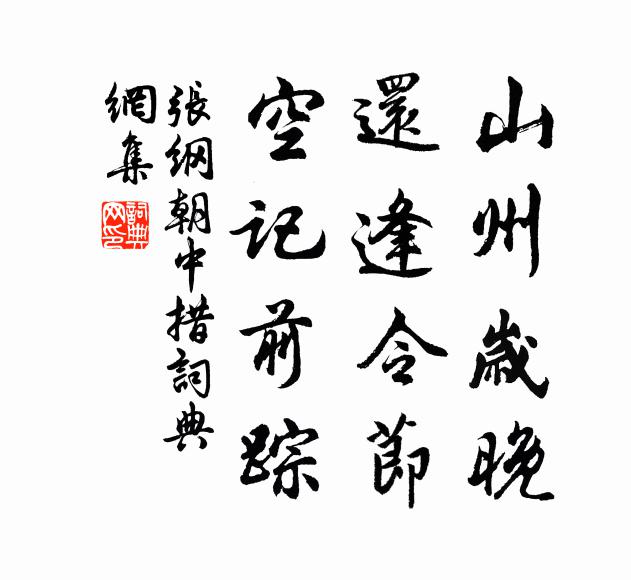 山州歲晚
還逢令節
空記前踪
張綱朝中措詞典
網集
詞典
网印